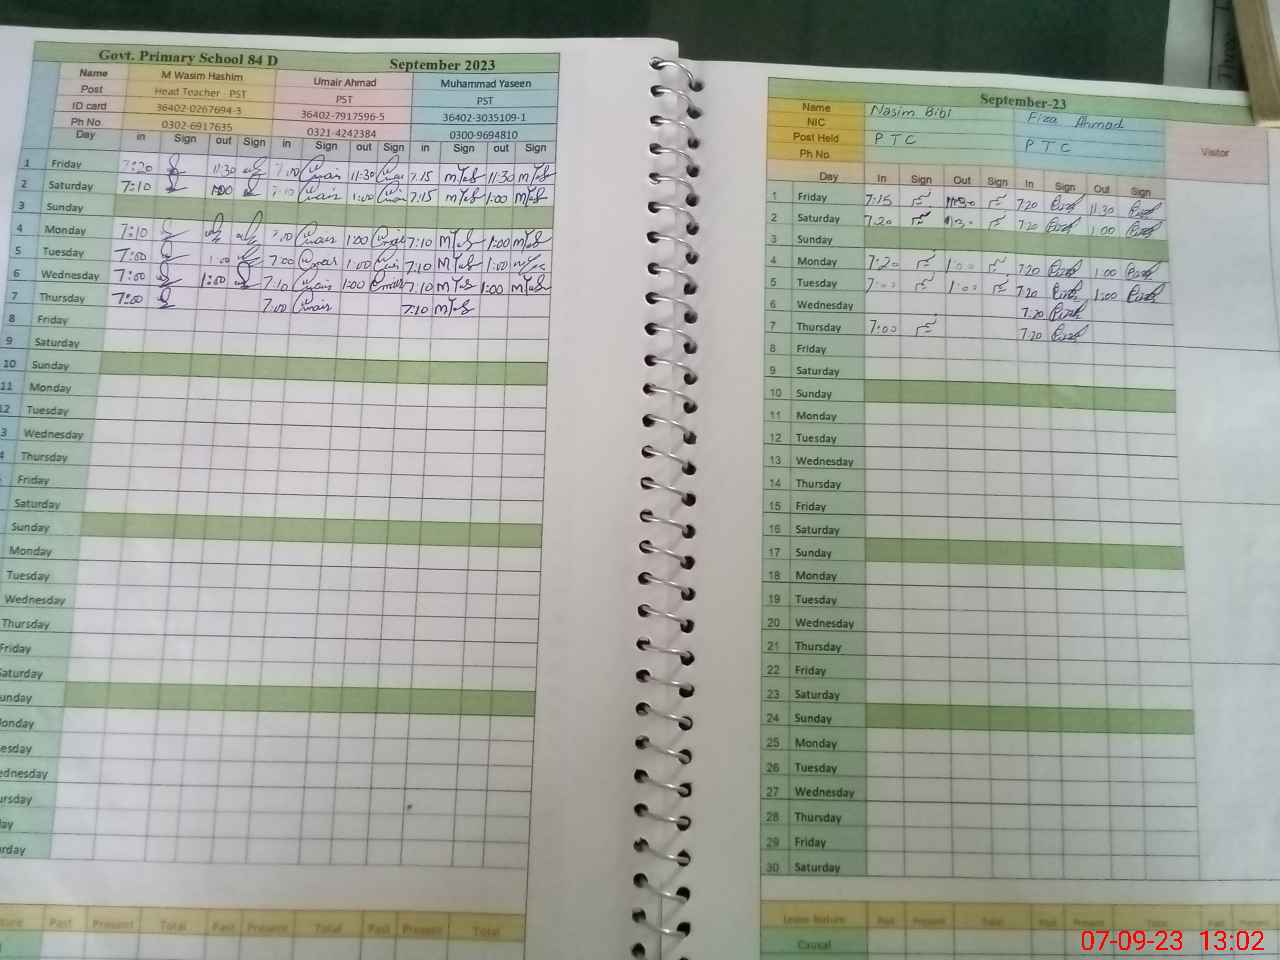 Govt. Primary School 84 D September 2023
Name M Wasim Hashim Umair Ahmad Muhammad Yaseen
Post Head Teacher - PST PST PST
ID card 36402-0267694-3 36402-7917596-5 36402-3035109-1
Ph No. 0302-6917635 0321-4242384 0300-9694810
Day in Sign out Sign in Sign out Sign in Sign out Sign
1 Friday 7:20 11:30 7:00 11:30 7:15 11:30
2 Saturday 7:10 1:00 7:10 1:00 7:15 1:00
3 Sunday
4 Monday 7:10 7:00 1:00 7:10 1:00
5 Tuesday 7:00 1:00 7:00 1:00 7:10 1:00
6 Wednesday 7:00 1:00 7:10 1:00 7:10 1:00
7 Thursday 7:00 7:00 7:10
8 Friday
9 Saturday
10 Sunday
11 Monday
12 Tuesday
3 Wednesday
4 Thursday
Friday
Saturday
Sunday
Monday
Tuesday
Wednesday
Thursday
Friday
aturday
unday
onday
esday
ednesday
ursday
ay
rday
Past Present Total Past Present Total Past Present Total
September-23
Name Nasim Bibi Fiza Ahmad
NIC
Post Held PTC PTC
Ph No.
Visitor
Day In Sign Out Sign In Sign Out Sign
1 Friday 7:15 11:30 7:20 11:30
2 Saturday 7:20 7:20 1:00
3 Sunday
4 Monday 7:20 1:00 7:20 1:00
5 Tuesday 7:00 1:00 7:20 1:00
6 Wednesday 7:20
7 Thursday 7:00 7:20
8 Friday
9 Saturday
10 Sunday
11 Monday
12 Tuesday
13 Wednesday
14 Thursday
15 Friday
16 Saturday
17 Sunday
18 Monday
19 Tuesday
20 Wednesday
21 Thursday
22 Friday
23 Saturday
24 Sunday
25 Monday
26 Tuesday
27 Wednesday
28 Thursday
29 Friday
30 Saturday
Leave Nature Past Present Total Past Present Total Past Present
Causal
07-09-23 13:02